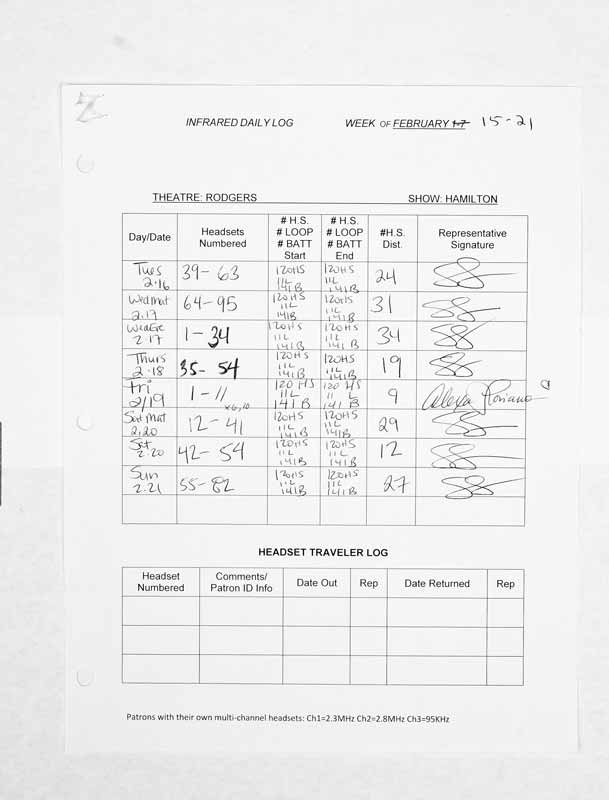 INFRARED DAILY LOG WEEK OF FEBRUARY 1-7 15-21
THEATRE: RODGERS SHOW: HAMILTON
Day/Date Headsets Numbered # H.S. # LOOP # BATT Start # H.S. # LOOP # BATT End #H.S. Dist. Representative Signature
Tues 2.16 39-63 120HS 11L 141B 120HS 11L 141B 24
Wed Mat 2.17 64-95 120HS 11L 141B 120HS 11L 141B 31
Wed Eve 2.17 1-34 120HS 11L 141B 120HS 11L 141B 34
Thurs 2.18 35-54 120HS 11L 141B 120HS 11L 141B 19
Fri 2/19 1-11 x6,10 120 HS 11L 141B 120 HS 11 L 141 B 9 Alexa Floriano
Sat Mat 2.20 12-41 120HS 11L 141B 120HS 11L 141B 29
Sat 2.20 42-54 120HS 11L 141B 120HS 11L 141B 12
Sun 2.21 55-82 120HS 11L 141B 120HS 11L 141B 27
HEADSET TRAVELER LOG
Headset Numbered Comments/ Patron ID Info Date Out Rep Date Returned Rep
Patrons with their own multi-channel headsets: Ch1=2.3MHz Ch2=2.8MHz Ch3=95KHz